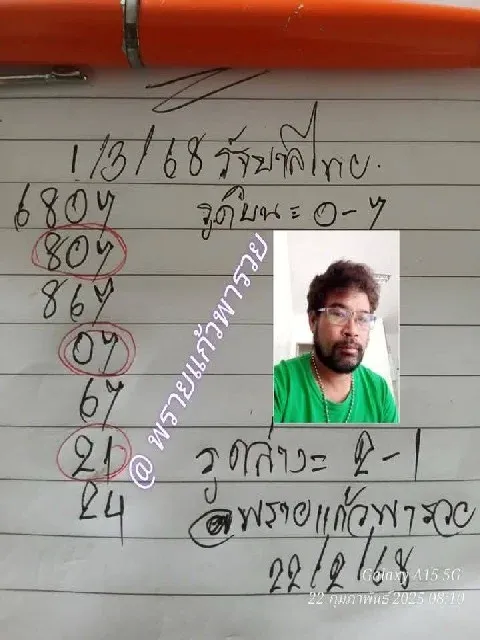 1/3/68 รัฐบาลไทย.
6807 รูดบน= 0-7
807
867
07
67
21 รูดล่าง= 2-1
24
@พรายแก้วพารวย
22/2/68
@ พรายแก้วพารวย
Galaxy A15 5G
22 กุมภาพันธ์ 2025 08:10